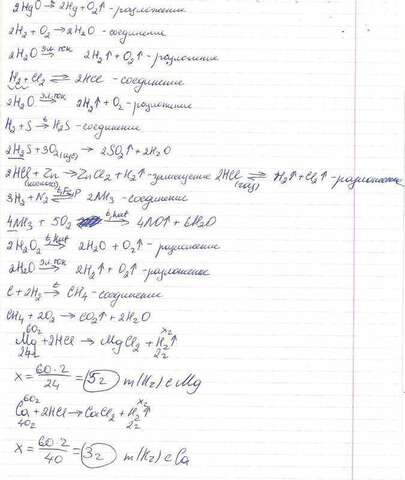 2HgO → 2Hg + O₂↑ - разложение
2H₂ + O₂ → 2H₂O - соединение
2H₂O эл.ток→ 2H₂↑ + O₂↑ - разложение
H₂ + Cl₂ ⇌ 2HCl - соединение
2H₂O эл.ток→ 2H₂↑ + O₂ - разложение
H₂ + S t→ H₂S - соединение
2H₂S + 3O₂ (изб) → 2SO₂↑ + 2H₂O
2HCl + Zn → ZnCl₂ + H₂↑ - замещение 2HCl (газ) ⇌ H₂↑ + Cl₂↑ - разложение
3H₂ + N₂ t, Fe, P ⇌ 2NH₃ - соединение
4NH₃ + 5O₂ t, kat→ 4NO↑ + 6H₂O
2H₂O₂ t, kat→ 2H₂O + O₂↑ - разложение
2H₂O эл.ток→ 2H₂↑ + O₂↑ - разложение
C + 2H₂ t→ CH₄ - соединение
CH₄ + 2O₂ → CO₂↑ + 2H₂O
60г xг
Mg + 2HCl → MgCl₂ + H₂↑
24г 2г
x = 60·2/24 = 5г m(H₂) с Mg
60г xг
Ca + 2HCl → CaCl₂ + H₂↑
40г 2г
x = 60·2/40 = 3г m(H₂) с Ca